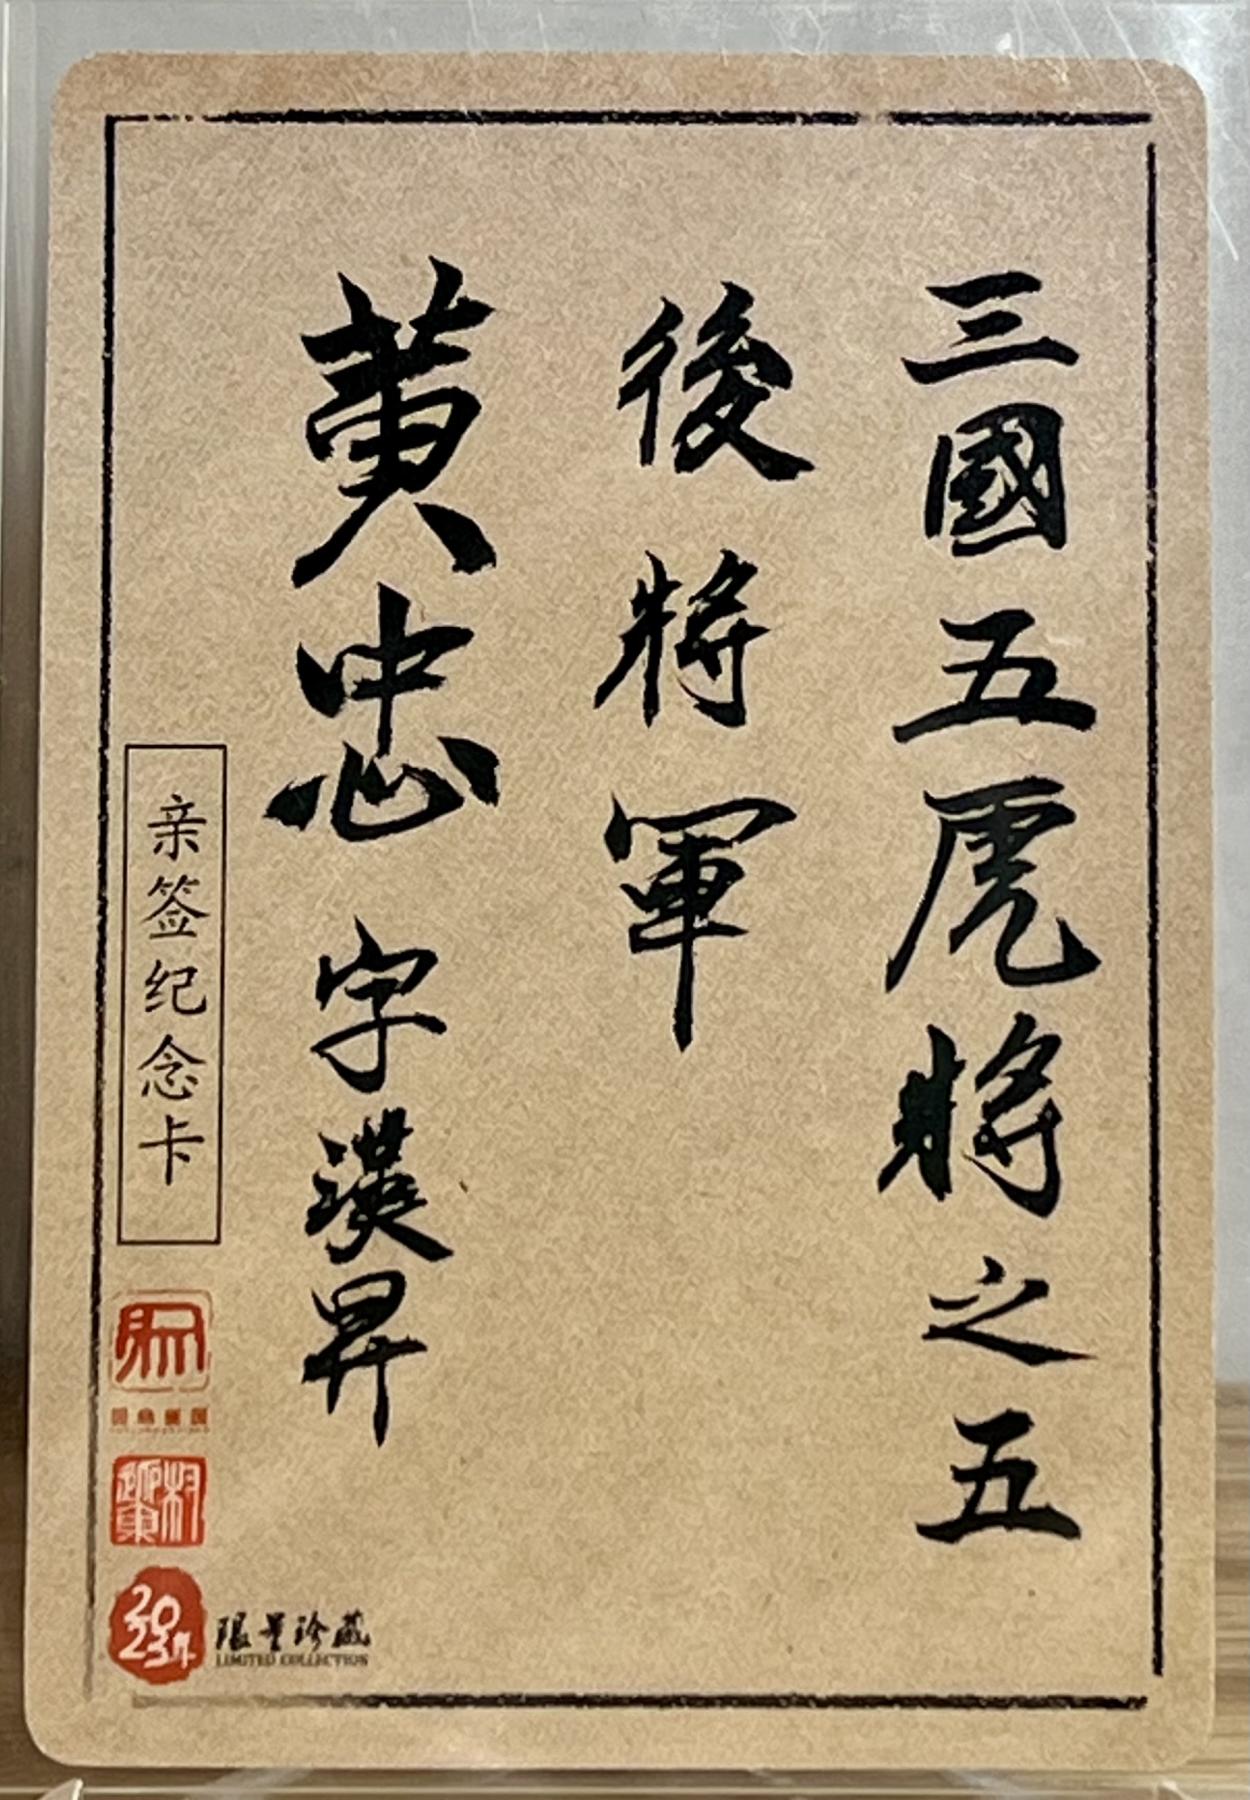 三國五虎將之五
後將軍
黄忠 字漢昇
亲签纪念卡
2023年
限量珍藏
LIMITED COLLECTION